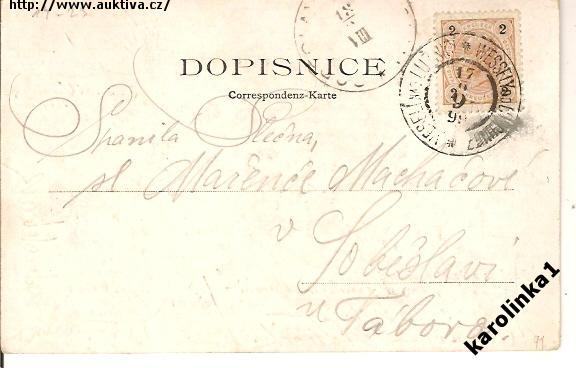 http://www.auktiva.cz/
DOPISNICE
Correspondenz-Karte
2 2
18
VIII
17
99
Spanilá Slečna,
sl. Mařence Machačové
v
Soběslavi
u Tábora.
karolinka1